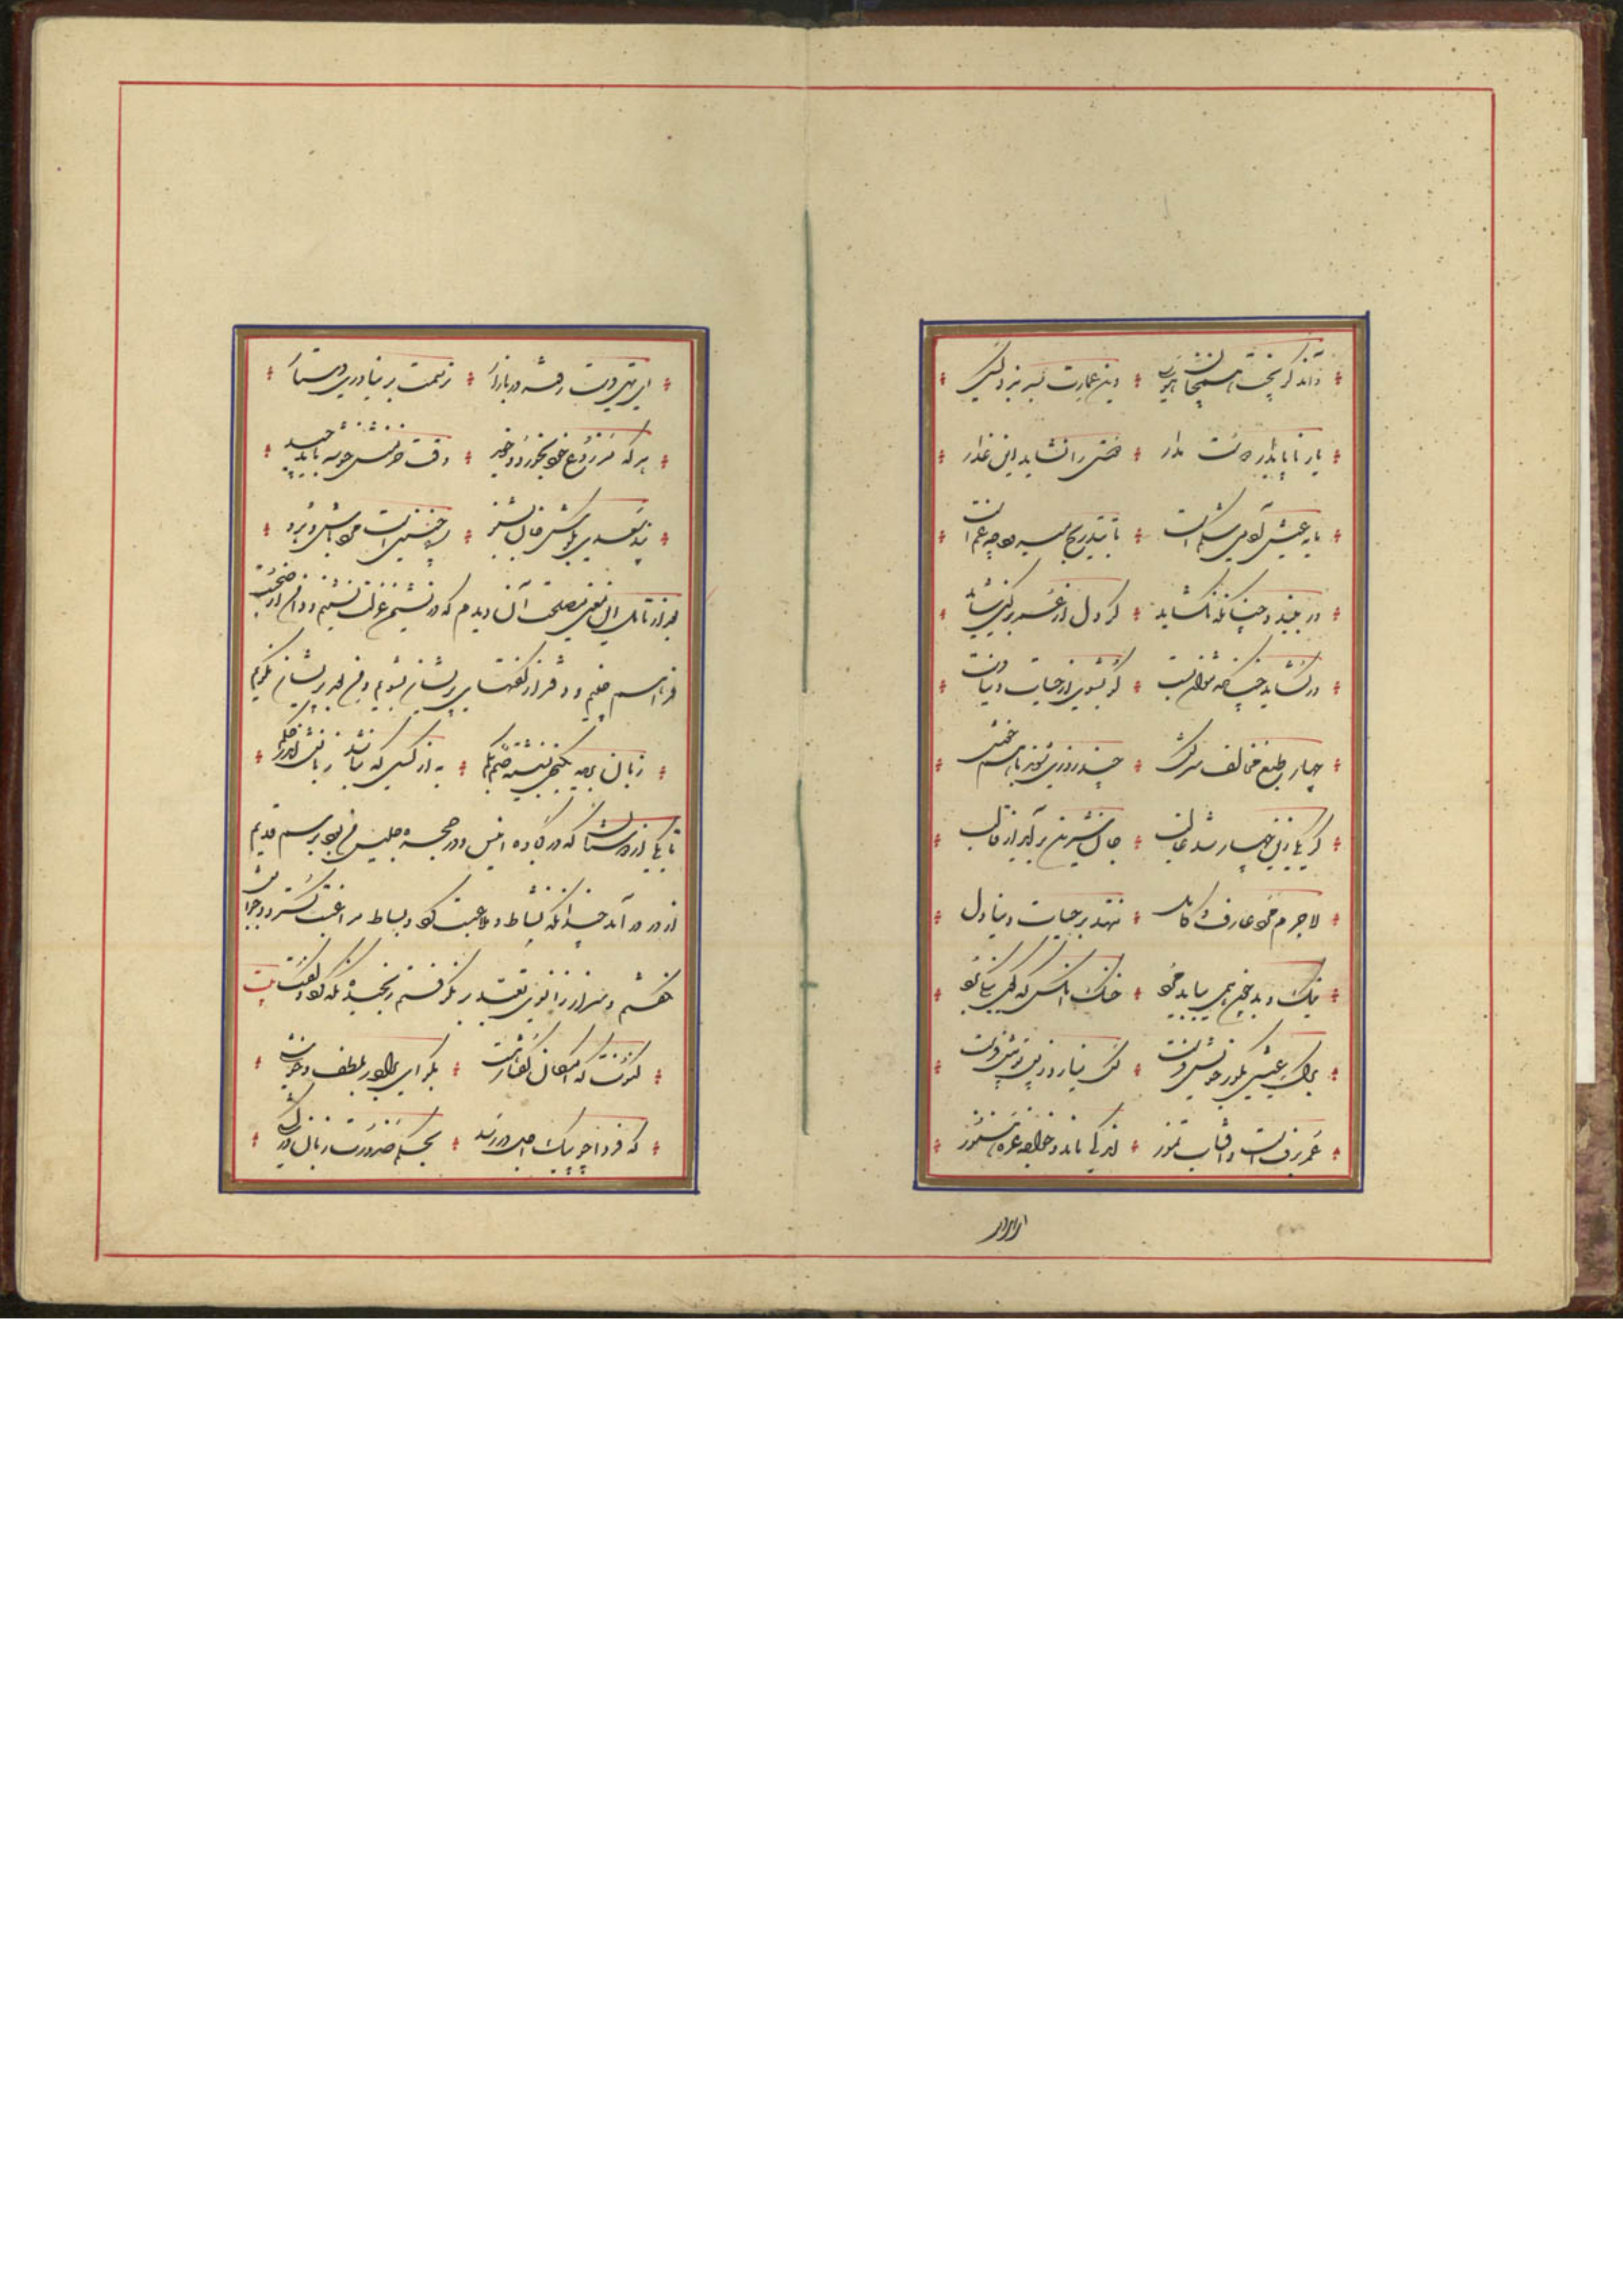 وآن دگر پخت همچنان هوسی وین عمارت بسر نبرد کسی
یار ناپایدار دوست مدار دوستی را نشاید این غدار
مایه عیش آدمی شکم است تا بتدریج میرود چه غم است
گر ببندد چنانکه نگشاید گر دل از عمر برکند شاید
ور گشاید چنانکه نتوان بست گو بشوی از حیات دنیا دست
چهار طبع مخالف سرکش چند روزی شوند با هم خوش
گر یکی زین چهار شد غالب جان شیرین برآید از قالب
لاجرم مرد عارف کامل ننهد بر حیات دنیا دل
نیک و بد چون همی بباید مرد خنک آنکس که گوی نیکی برد
برگ عیشی بگور خویش فرست کس نیارد ز پس تو پیش فرست
عمر برفست و آفتاب تموز اندکی ماند و خواجه غره هنوز
ای تهی دست رفته در بازار
ای تهی دست رفته در بازار ترسمت بر نیاوری دستار
هر که مزروع خود بخورد بخوید وقت خرمنش خوشه باید چید
پند سعدی بگوش جان بشنو ره چنین است مرد باش و برو
بعد از تأمل این معنی مصلحت آن دیدم که در نشیمن عزلت نشینم و دامن از صحبت
فراهم چینم و دفتر از گفتهای پریشان بشویم و من بعد پریشان نگویم
زبان بریده بکنجی نشسته صم بکم به از کسی که نباشد زبانش اندر حکم
تا یکی از دوستان که در کجاوه انیس و در حجره جلیس من بود برسم قدیم
از در در آمد چندانکه نشاط و ملاعبت کرد و بساط مداعبت گسترد جوابش
نگفتم و سر از زانوی تعبد بر نگرفتم رنجیده نگه کرد و گفت بیت
کنونت که امکان گفتار هست بگو ای برادر بلطف و خوشی
که فردا چو پیک اجل در رسد بحکم ضرورت زبان درکشی